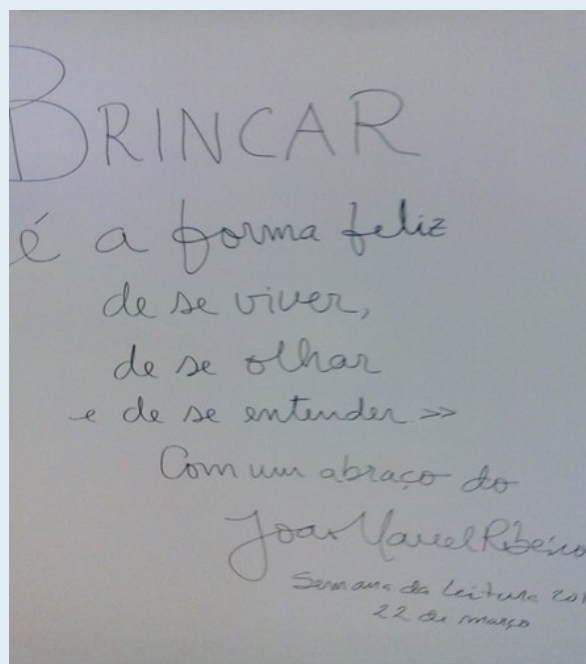 BRINCAR
é a forma feliz
de se viver,
de se olhar
e de se entender >>
Com um abraço do
João Manuel Ribeiro
Semana da Leitura 201
22 de março